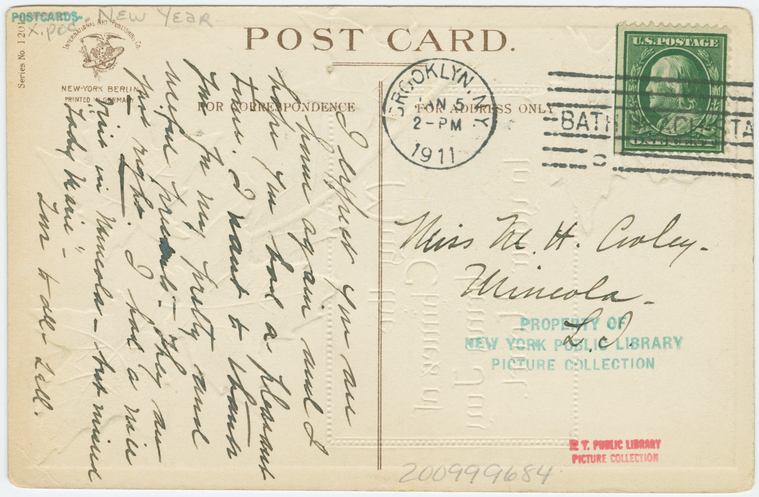 POSTCARDS-
New Year
X.pos
Series No. 1201
INTERNATIONAL ART PUBLISHING CO.
NEW-YORK BERLIN
PRINTED IN GERMANY
POST CARD.
FOR CORRESPONDENCE
FOR ADDRESS ONLY
BROOKLYN, N.Y.
JAN 5
2-PM
1911
BATH
STA
C
U.S. POSTAGE
ONE CENT
I expect you are
home again and I
hope you had a pleasant
time. I want to thank
you for my pretty and
useful presents. They are
just right. I had a nice
time in Mineola - but missed
"Lady Marie" -
Love to all - Lill.
Miss M. H. Cooley -
Mineola -
L.I.
PROPERTY OF
NEW YORK PUBLIC LIBRARY
PICTURE COLLECTION
N. Y. PUBLIC LIBRARY
PICTURE COLLECTION
200999684